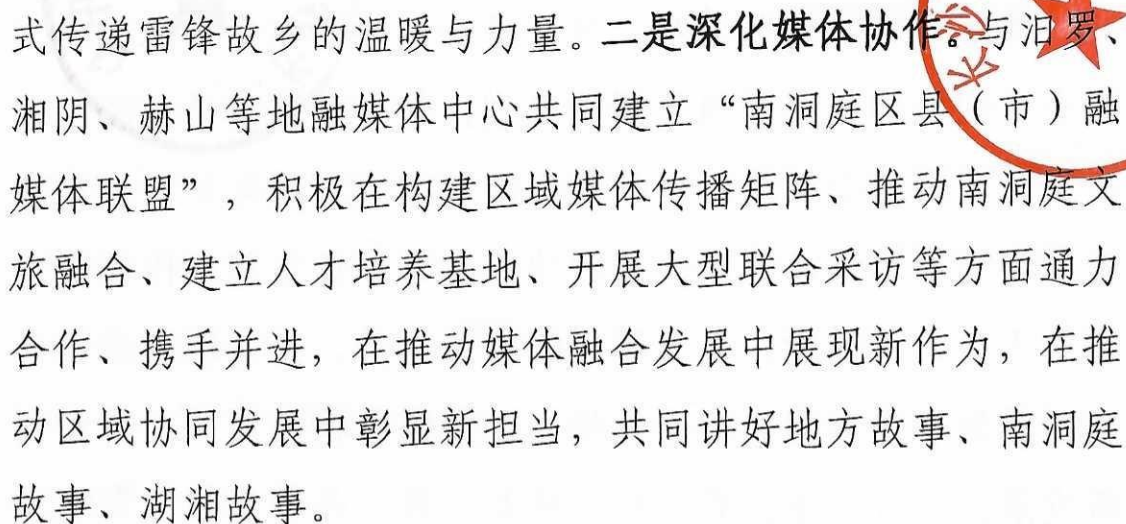 式传递雷锋故乡的温暖与力量。二是深化媒体协作。与汨罗、
湘阴、赫山等地融媒体中心共同建立“南洞庭区县（市）融
媒体联盟”，积极在构建区域媒体传播矩阵、推动南洞庭文
旅融合、建立人才培养基地、开展大型联合采访等方面通力
合作、携手并进，在推动媒体融合发展中展现新作为，在推
动区域协同发展中彰显新担当，共同讲好地方故事、南洞庭
故事、湖湘故事。
长沙